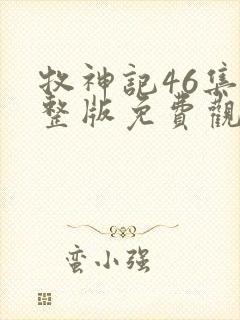 牧神記46集
整版免費觀
蛮小强